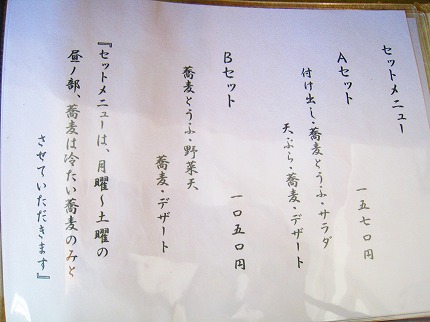 セットメニュー
Aセット 一五七〇円
付け出し・蕎麦とうふ・サラダ
天ぷら・蕎麦・デザート
Bセット 一〇五〇円
蕎麦とうふ・野菜天
蕎麦・デザート
『セットメニューは、月曜〜土曜の
昼ノ部、蕎麦は冷たい蕎麦のみと
させていただきます』